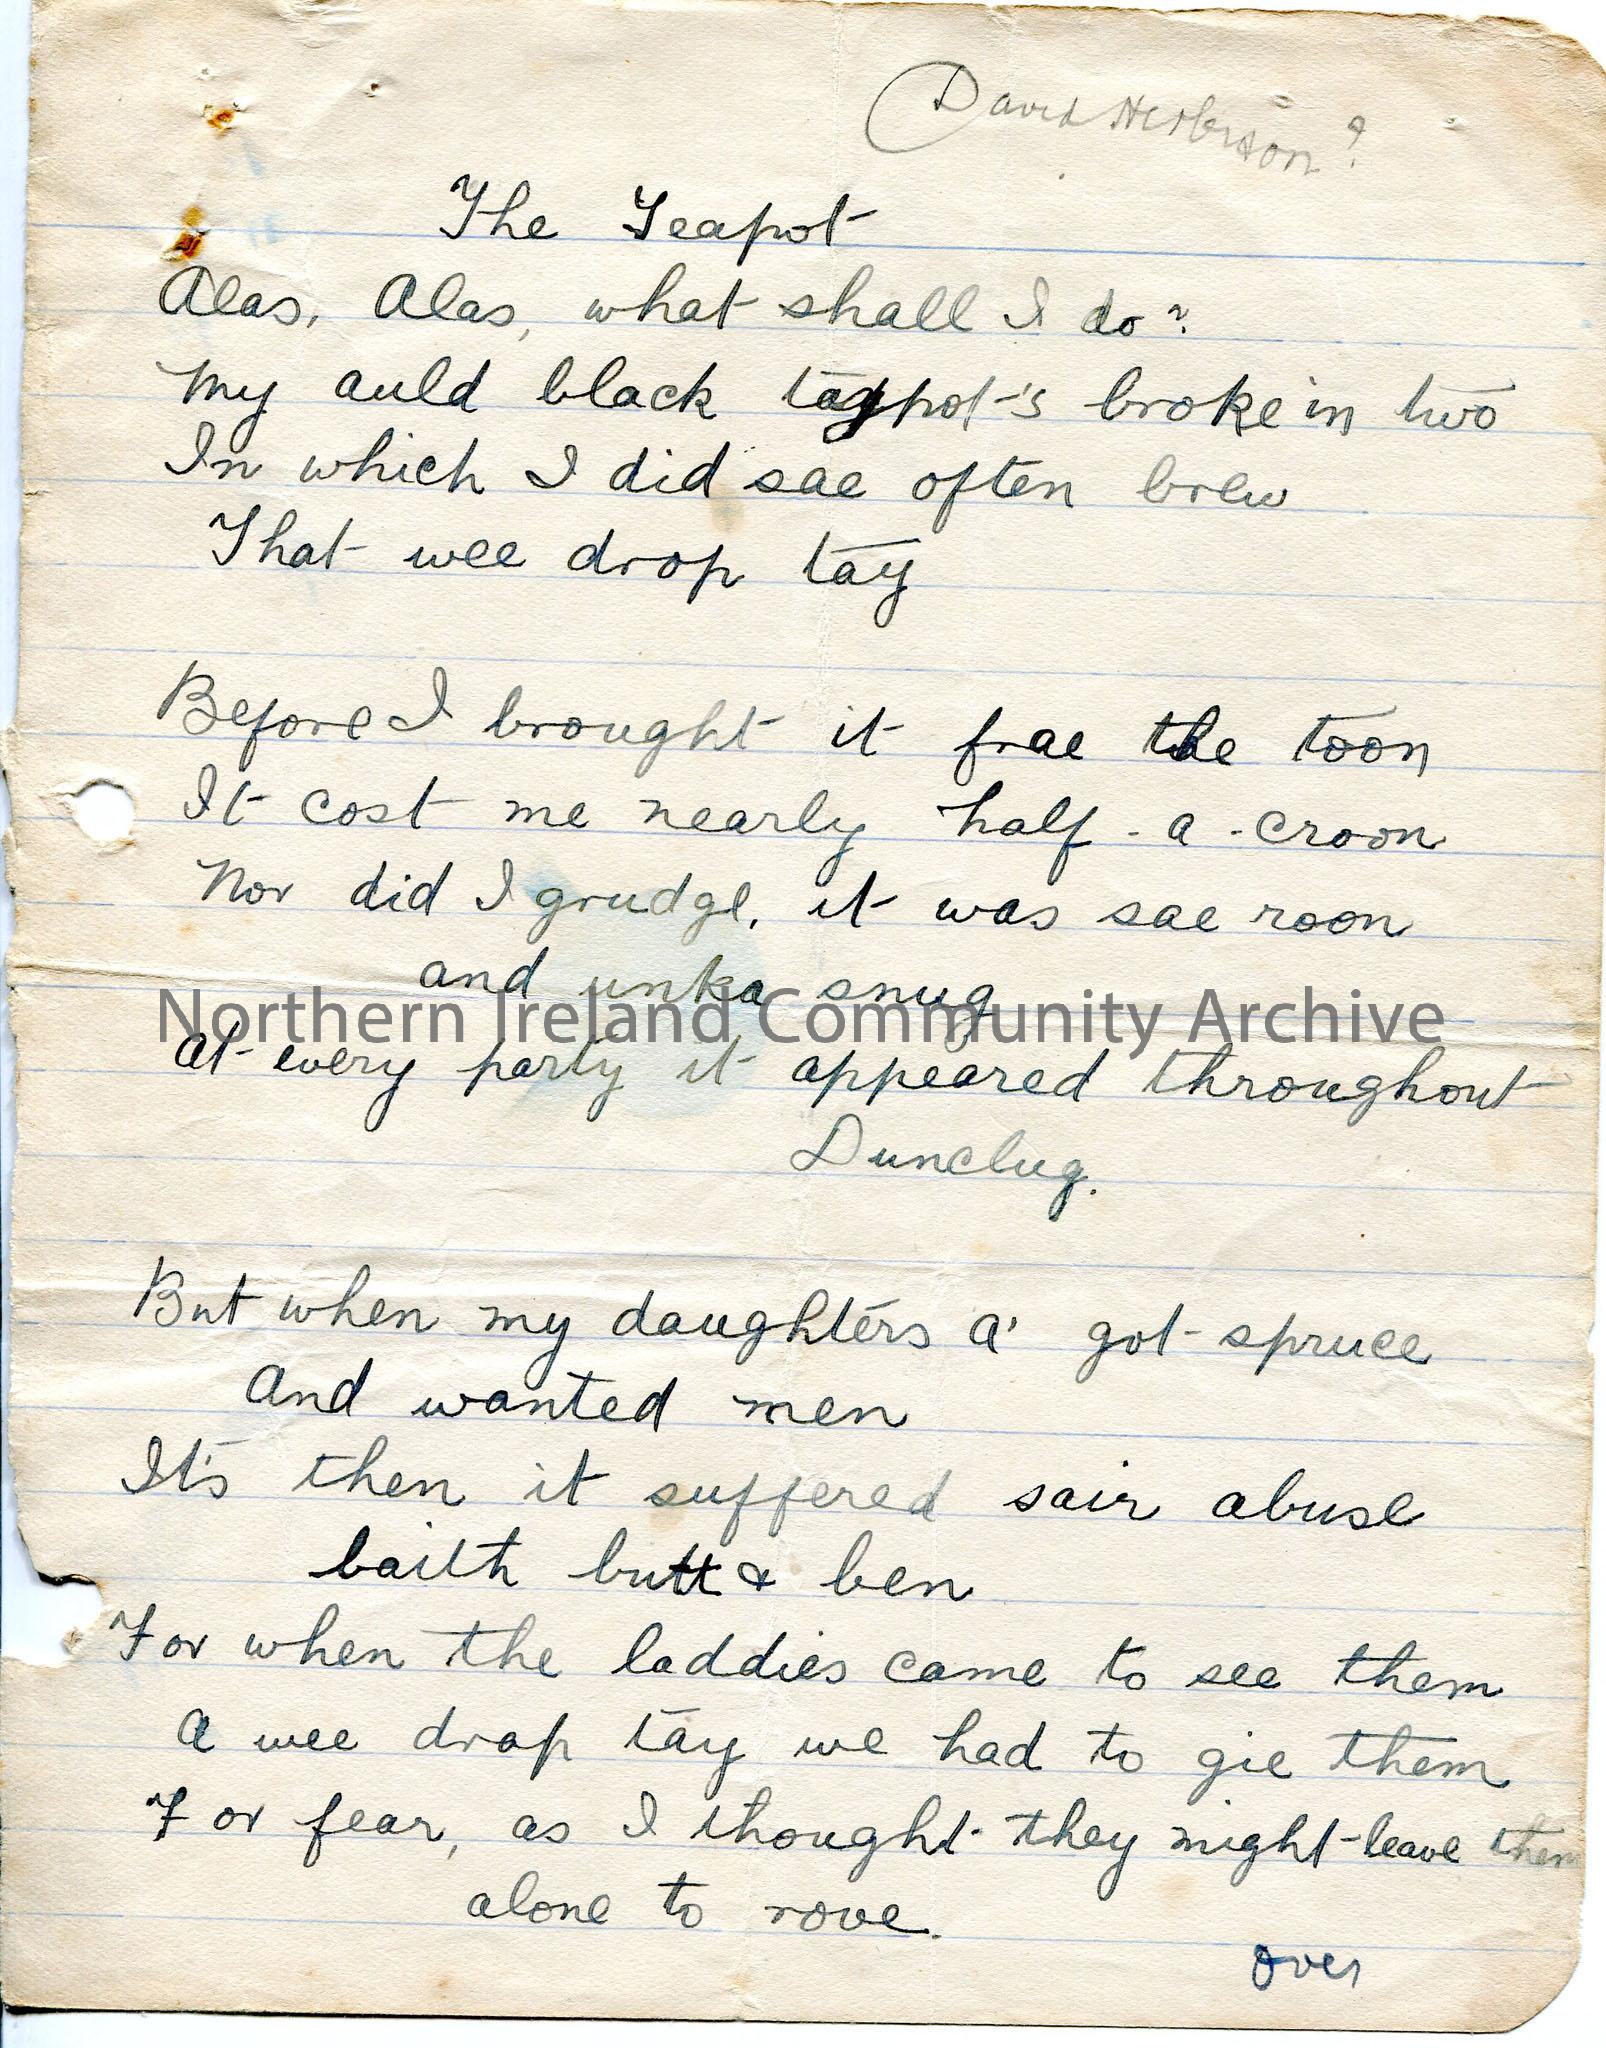 David Herbison?
The Teapot
Alas, Alas, what shall I do?
My auld black taypot's broke in two
In which I did sae often brew
That wee drop tay
Before I brought it frae the toon
It cost me nearly half-a-croon
Nor did I grudge, it was sae roon
and unka snug
Northern Ireland Community Archive
At every party it appeared throughout
Dunclug.
But when my daughters a' got spruce
And wanted men
It's then it suffered sair abuse
baith butt & ben
For when the laddies came to see them
A wee drap tay we had to gie them
For fear, as I thought they might leave them
alone to rove.
over